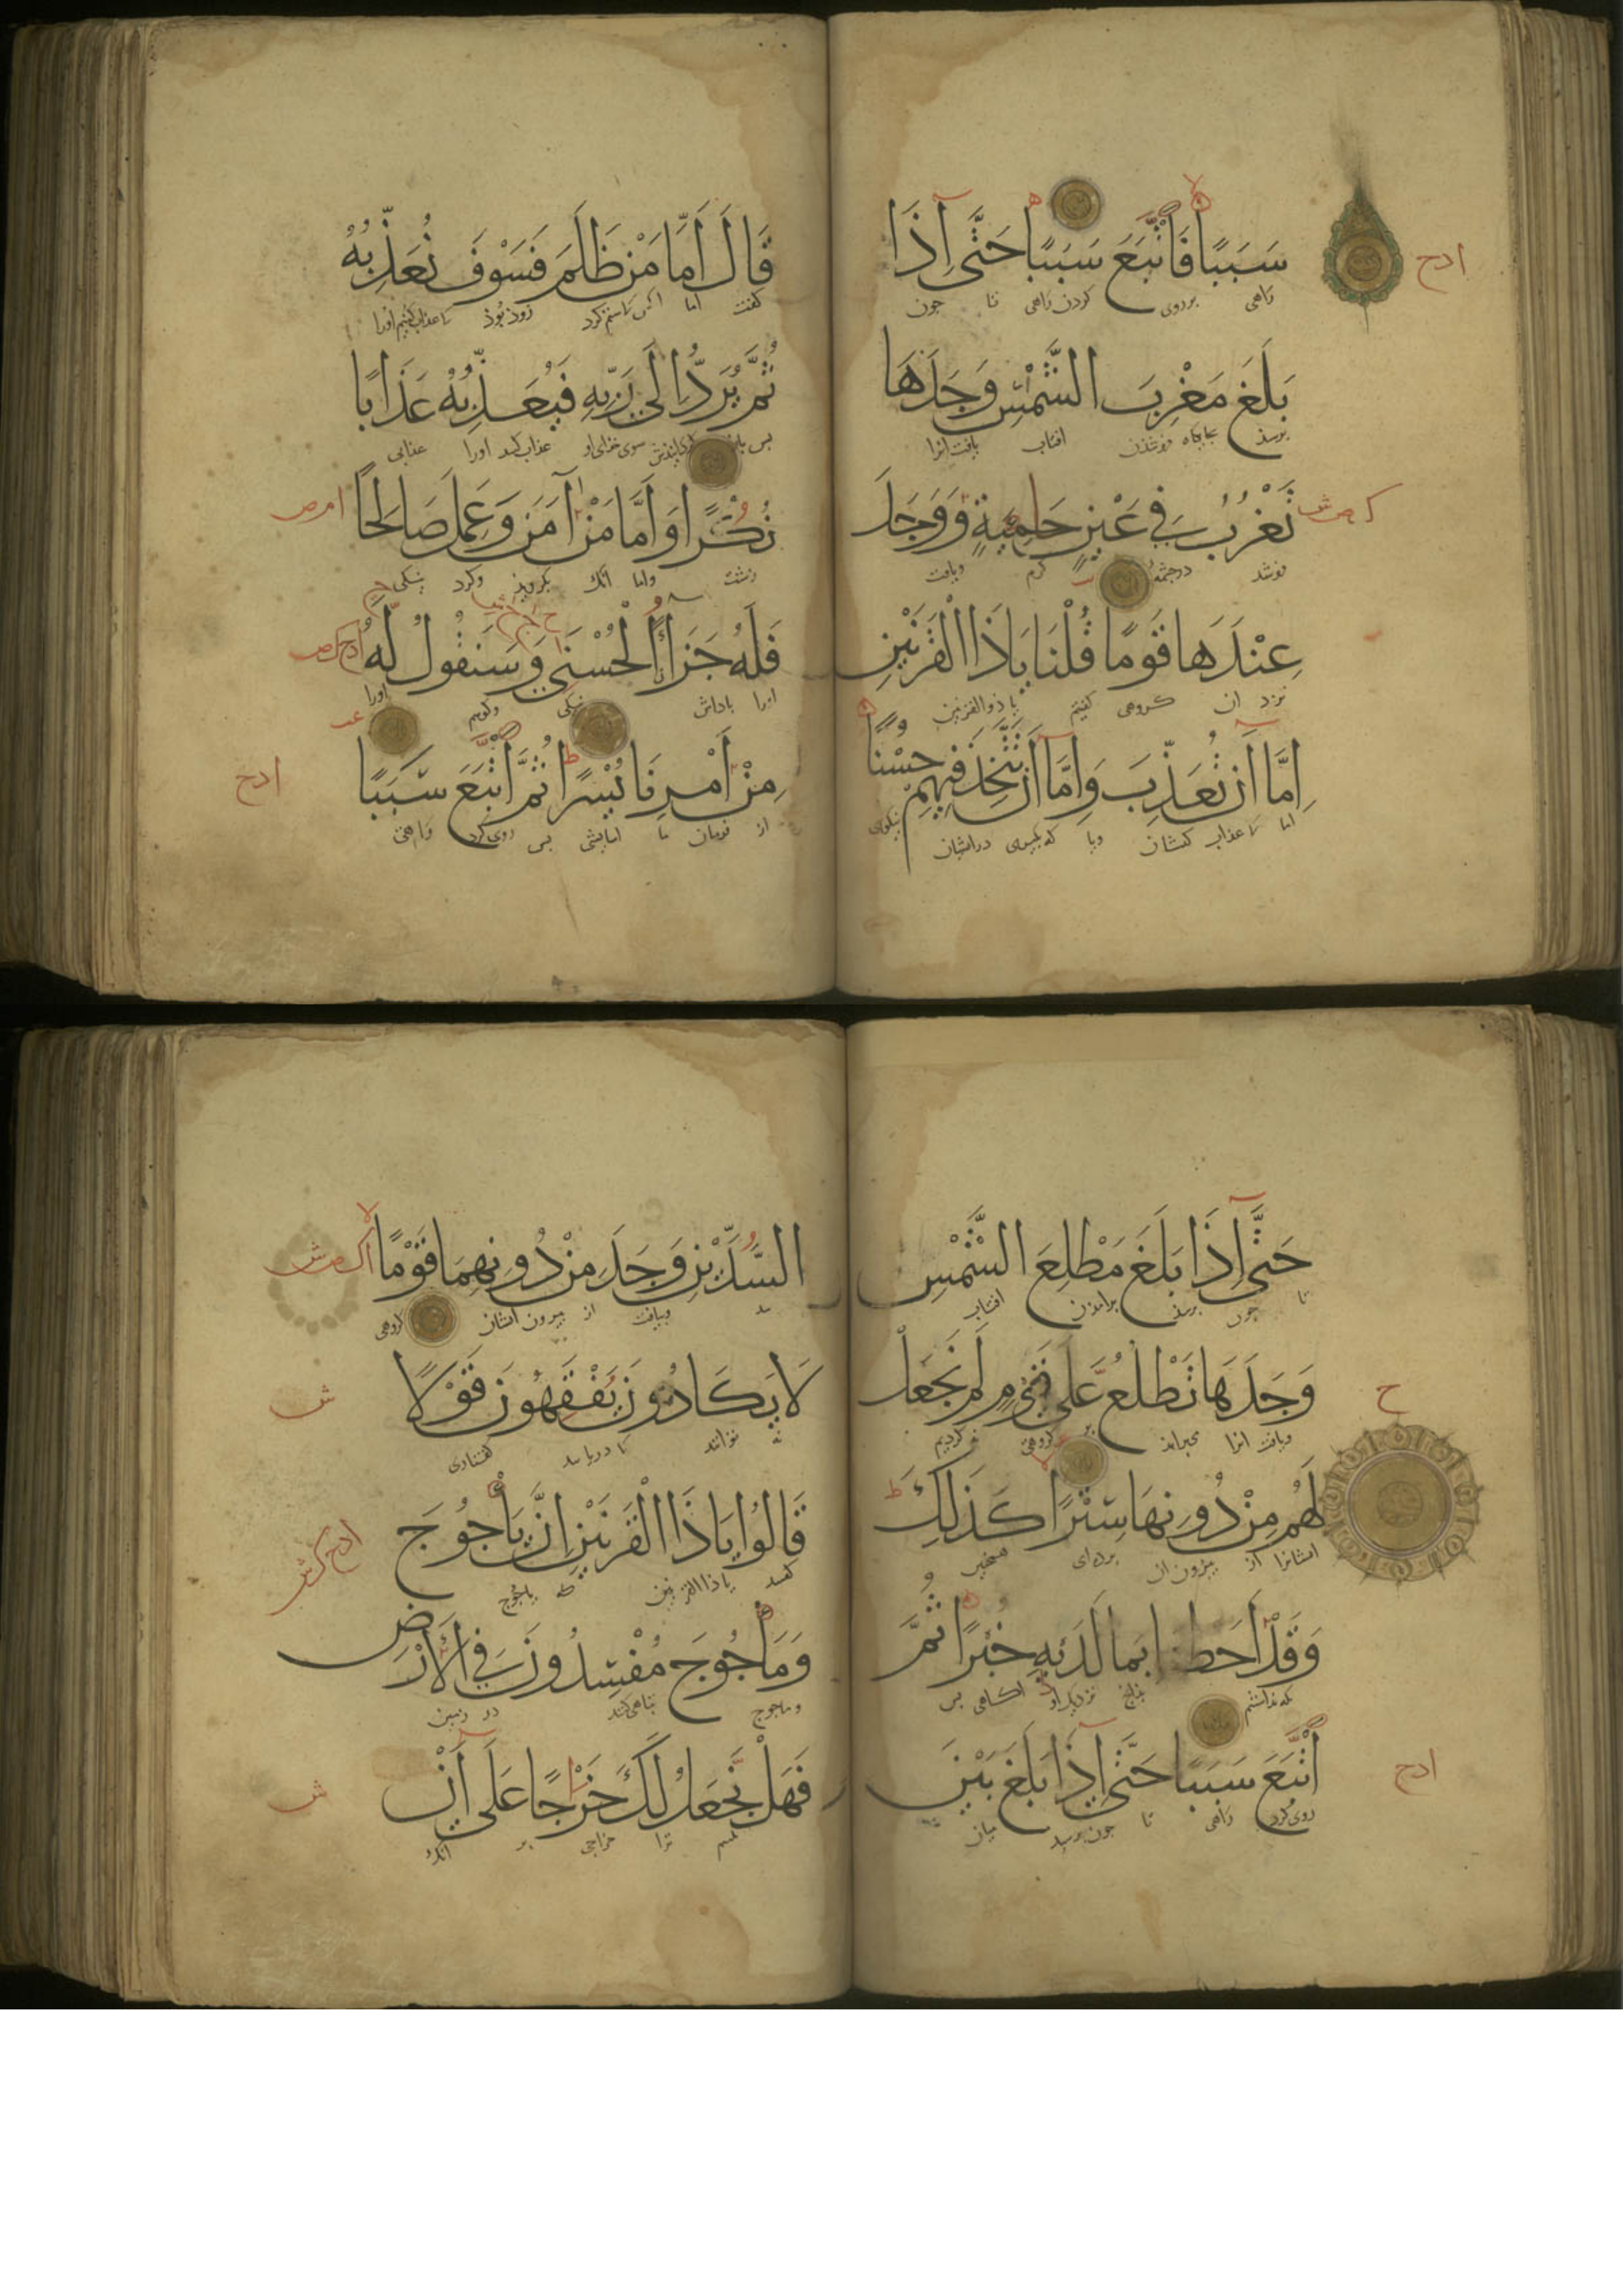 سَبَبًا فَاتَّبَعَ سَبَبًا حَتَّى إِذَا
راهی بر روی کردن راهی تا جون
بَلَغَ مَغْرِبَ الشَّمْسِ وَجَدَهَا
برسذ بجایکاه فروشذن افتاب یافت انرا
تَغْرُبُ فِي عَيْنٍ حَامِيَةٍ وَوَجَدَ
فروشذ در جشمهٔ کرم ویافت
عِنْدَهَا قَوْمًا قُلْنَا يَا ذَا الْقَرْنَيْنِ
نزد ان کروهی کفتیم یا ذو القرنین
إِمَّا أَنْ تُعَذِّبَ وَإِمَّا أَنْ تَتَّخِذَ فِيهِمْ حُسْنًا
اما تا عذاب کنشان ویا که بکیری درایشان نیکوی
قَالَ أَمَّا مَنْ ظَلَمَ فَسَوْفَ نُعَذِّبُهُ
کفت اما انکس کاستم کرد زوذ بوذ تا عذاب کنیم اورا
ثُمَّ يُرَدُّ إِلَى رَبِّهِ فَيُعَذِّبُهُ عَذَابًا
بس سوی خدای او عذاب کند اورا عذابی
نُكْرًا وَأَمَّا مَنْ آمَنَ وَعَمِلَ صَالِحًا
زشت واما انک بکرویذ وکرد نیکی
فَلَهُ جَزَاءً الْحُسْنَى وَسَنَقُولُ لَهُ
انرا باداش نیکی وکویم اورا
مِنْ أَمْرِنَا يُسْرًا ثُمَّ اتَّبَعَ سَبَبًا
از فرمان ما اسایشی بس روی کرد راهی
حَتَّى إِذَا بَلَغَ مَطْلِعَ الشَّمْسِ
تا جون برسذ برامذن افتاب
وَجَدَهَا تَطْلُعُ عَلَى قَوْمٍ لَمْ نَجْعَلْ
ویافت انرا می برامذ بر کروهی نه کردیم
لَهُمْ مِنْ دُونِهَا سِتْرًا كَذَلِكَ
ایشانرا از بیرون ان برده‌ای همجنین
وَقَدْ أَحَطْنَا بِمَا لَدَيْهِ خُبْرًا ثُمَّ
که بدانستم بدانج نزدیک او اکاهی بس
اتَّبَعَ سَبَبًا حَتَّى إِذَا بَلَغَ بَيْنَ
روی کرد راهی تا جون برسید میان
السَّدَّيْنِ وَجَدَ مِنْ دُونِهِمَا قَوْمًا
سد ویافت از بیرون ایشان کروهی
لَا يَكَادُونَ يَفْقَهُونَ قَوْلًا
نه توانند تا دریابند کفتاری
قَالُوا يَا ذَا الْقَرْنَيْنِ إِنَّ يَأْجُوجَ
کفتند یا ذا القرنین که یاجوج
وَمَأْجُوجَ مُفْسِدُونَ فِي الْأَرْضِ
وماجوج تباهی کنند در زمین
فَهَلْ نَجْعَلُ لَكَ خَرْجًا عَلَى أَنْ
ترا خراجی بر انک